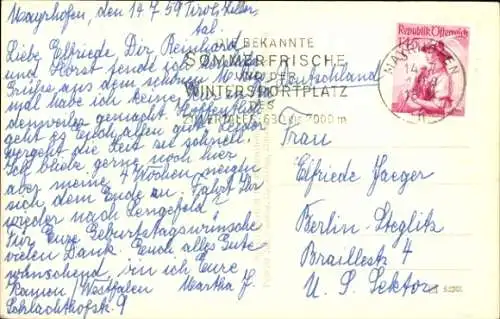 Mayrhofen, den 14.7.59 Tirol, Ziller-
tal.
Liebe Elfriede. Dir Reinhard
und Horst sende ich
Grüße aus dem schönen
mal habe ich keine
gemacht. Hoffentlich
geht es Euch allen gut. Leider
vergeht die Zeit so schnell.
Ich bliebe gerne noch hier
aber meine 4 Wochen neigen
sich dem Ende zu. Fahrt Ihr
wieder nach Lengefeld?
Für Eure Geburtstagswünsche
vielen Dank. Euch alles Gute
wünschend, bin ich Eure
Kamen/Westfalen Martha J.
Schlachthofstr. 9
DIE BEKANNTE
SOMMERFRISCHE
UND DER
WINTERSPORTPLATZ
DES
ZILLERTALES 630 bis 2000 m
Republik Österreich
MAYRHOFEN
Deutschland
Frau
Elfriede Jaeger
Berlin-Steglitz
Braillestr. 4
U.S. Sektor